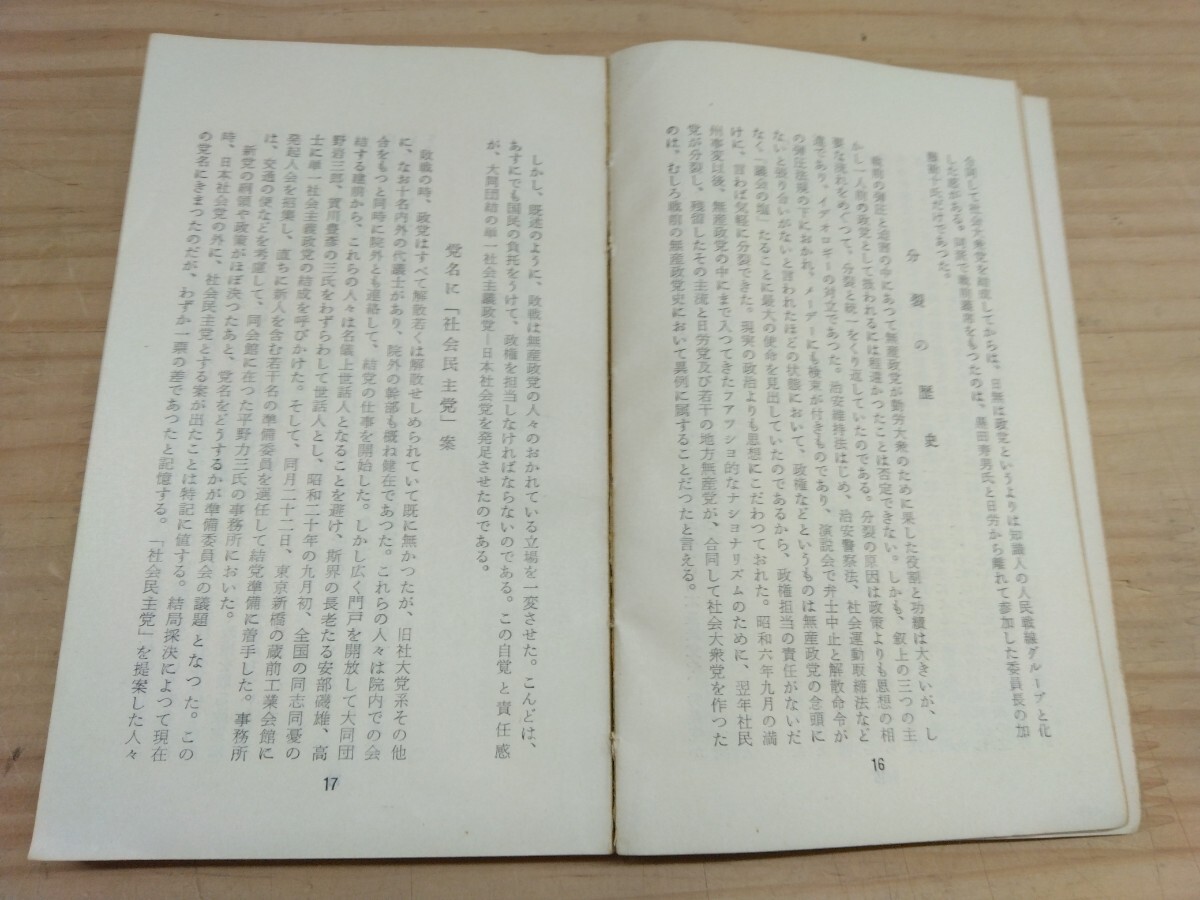 合同して社会大衆党を結成してからは、日無は政党というよりは知識人の人民戦線グループと化
した感がある。同派で戦前議席をもつたのは、黒田寿男氏と日労から離れて参加した委員長の加
藤勘十氏だけであつた。
分裂の歴史
戦前の弾圧と迫害の中にあつて無産政党が勤労大衆のために果した役割と功績は大きいが、し
かし一人前の政党として扱われるには程遠かつたことは否定できない。しかも、叙上の三つの主
要な流れをめぐつて、分裂と統一をくり返していたのである。分裂の原因は政策よりも思想の相
違であり、イデオロギーの対立であつた。治安維持法はじめ、治安警察法、社会運動取締法など
の弾圧法規の下におかれ、メーデーにも検束が付きものであり、演説会で弁士中止と解散命令が
ないと張り合いがないと言われたほどの状態において、政権などというものは無産政党の念頭に
なく「議会の塩」たることに最大の使命を見出していたのであるから、政権担当の責任がないだ
けに、言わば気軽に分裂できた。現実の政治よりも思想にこだわつておれた。昭和六年九月の満
州事変以後、無産政党の中にまで入つてきたファッショ的なナショナリズムのために、翌年社民
党が分裂し、残留したその主流と日労党及び若干の地方無産党が、合同して社会大衆党を作つた
のは、むしろ戦前の無産政党史において異例に属することだつたと言える。
16
しかし、既述のように、敗戦は無産政党の人々のおかれている立場を一変させた。こんどは、
あすにでも国民の負托をうけて、政権を担当しなければならないのである。この自覚と責任感
が、大同団結の単一社会主義政党―日本社会党を発足させたのである。
党名に「社会民主党」案
敗戦の時、政党はすべて解散若くは解散せしめられていて既に無かつたが、旧社大党系その他
に、なお十名内外の代議士があり、院外の幹部も概ね健在であつた。これらの人々は院内での会
合をもつと同時に院外とも連絡して、結党の仕事を開始した。しかし広く門戸を開放して大同団
結する建前から、これらの人々は名儀上世話人となることを避け、斯界の長老たる安部磯雄、高
野岩三郎、賀川豊彦の三氏をわずらわして世話人とし、昭和二十年の九月初、全国の同志同憂の
士に単一社会主義政党の結成を呼びかけた。そして、同月二十二日、東京新橋の蔵前工業会館に
発起人会を招集し、直ちに新人を含む若干名の準備委員を選任して結党準備に着手した。事務所
は、交通の便などを考慮して、同会館に在つた平野力三氏の事務所においた。
新党の綱領や政策がほぼ決つたあと、党名をどうするかが準備委員会の議題となつた。この
時、日本社会党の外に、社会民主党とする案が出たことは特記に値する。結局採決によつて現在
の党名にきまつたのだが、わずか一票の差であつたと記憶する。「社会民主党」を提案した人々
17